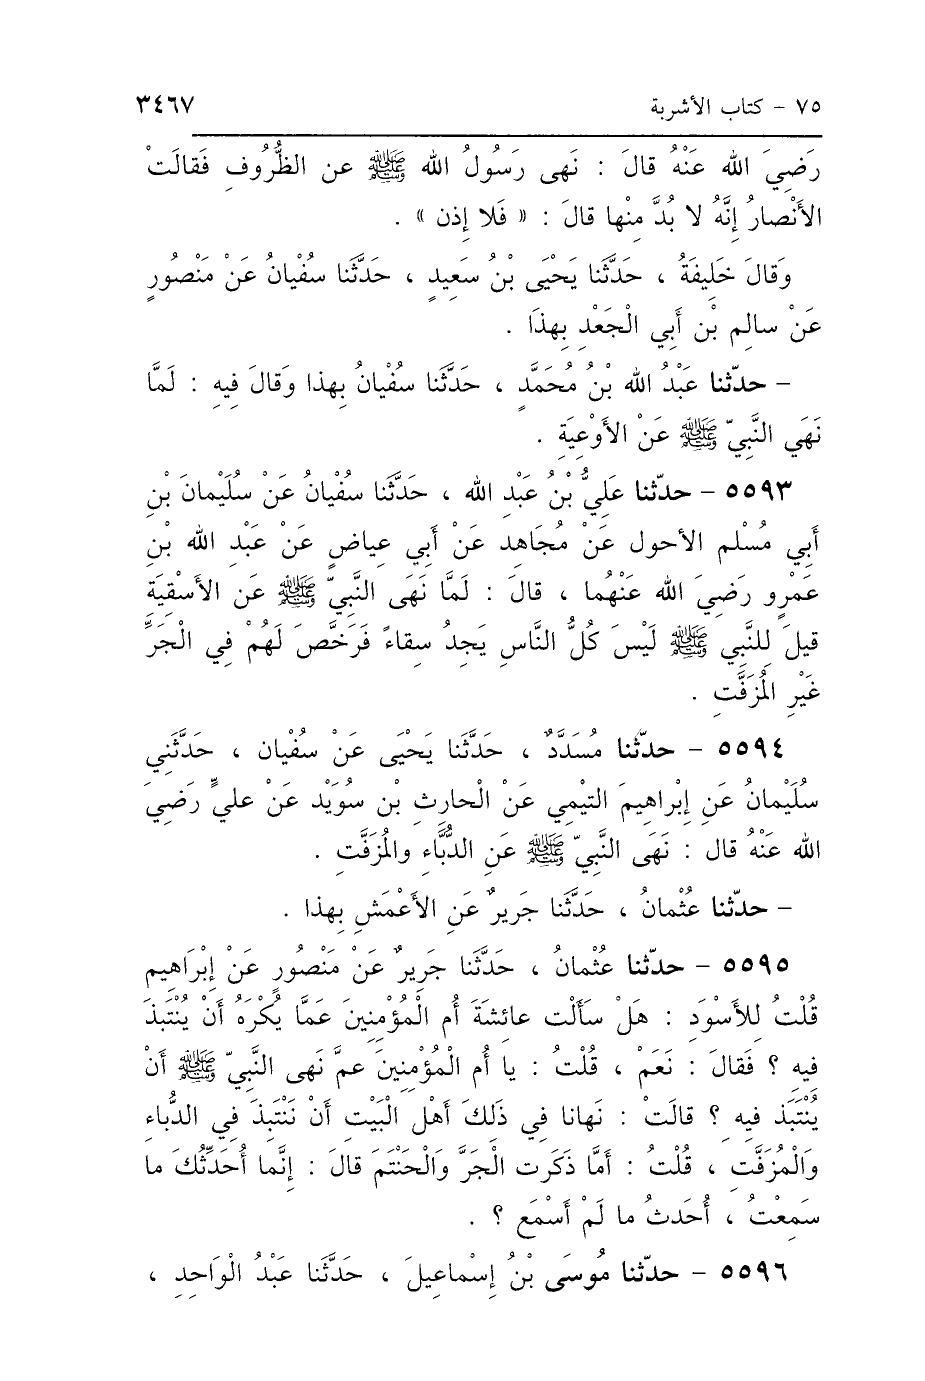 ٧٥ - كتاب الأشربة ٣٤٦٧
رَضِيَ الله عَنْهُ قالَ : نَهى رَسُولُ الله ﷺ عن الظُّرُوفِ فَقالَتْ
الأَنْصارُ إنَّهُ لا بُدَّ مِنْها قالَ : « فَلا إذن » .
وَقالَ خَلِيفَةُ ، حَدَّثَنا يَحْيَى بْنُ سَعِيدٍ ، حَدَّثَنا سُفْيانُ عَنْ مَنْصُورٍ
عَنْ سالِمِ بْنِ أَبِي الْجَعْدِ بِهذَا .
- حدّثنا عَبْدُ الله بْنُ مُحَمَّدٍ ، حَدَّثَنا سُفْيانُ بِهذا وَقالَ فِيهِ : لَمَّا
نَهَى النَّبِيّ ﷺ عَنْ الأَوْعِيَةِ .
٥٥٩٣ - حدّثنا عَلِيُّ بْنُ عَبْدِ الله ، حَدَّثَنا سُفْيانُ عَنْ سُلَيْمانَ بْنِ
أَبِي مُسْلم الأحول عَنْ مُجَاهِد عَنْ أَبِي عِياضٍ عَنْ عَبْدِ الله بْنِ
عَمْرٍو رَضِيَ الله عَنْهُما ، قالَ : لَمَّا نَهَى النَّبِيّ ﷺ عَنِ الأَسْقِيَةِ
قِيلَ لِلنَّبِي ﷺ لَيْسَ كُلُّ النَّاسِ يَجِدُ سِقاءً فَرَخَّصَ لَهُمْ فِي الْجَرِّ
غَيْرِ المُزَفَّتِ .
٥٥٩٤ - حدّثنا مُسَدَّدٌ ، حَدَّثَنا يَحْيَى عَنْ سُفْيان ، حَدَّثَنِي
سُلَيْمانُ عَنِ إبْراهِيمَ التيْمِي عَنْ الْحارِثِ بْنِ سوَيْد عَنْ عليٍّ رَضِيَ
الله عَنْهُ قال : نَهَى النَّبِيّ ﷺ عَنِ الدُّبَّاءِ والمُزَفَّتِ .
- حدّثنا عثْمانُ ، حَدَّثَنا جَرِيرٌ عَنِ الأَعْمَشِ بِهذا .
٥٥٩٥ - حدّثنا عثْمانُ ، حَدَّثَنا جَرِيرٌ عَنْ مَنْصُورٍ عَنْ إبْرَاهِيم
قُلْتُ لِلأَسْوَدِ : هَلْ سَأَلْت عائِشَةَ أُم الْمُؤْمِنِينَ عَمَّا يُكْرَهُ أَنْ يُنْتَبَذَ
فِيهِ ؟ فَقالَ : نَعَمْ ، قُلْتُ : يا أُم الْمُؤْمِنِينَ عمَّ نَهى النَّبِيّ ﷺ أَنْ
يُنْتَبَذ فِيهِ ؟ قالَتْ : نَهانا فِي ذَلِكَ أَهْلَ الْبَيْتِ أَنْ نَنْتَبِذَ فِي الدُّباءِ
وَالْمُزَفَّتِ ، قُلْتُ : أَمَّا ذَكَرت الْجَرَّ وَالْحَنْتَمَ قالَ : إنَّما أُحَدِّثُكَ ما
سَمِعْتُ ، أُحَدثُ ما لَمْ أَسْمَع ؟ .
٥٥٩٦ - حدّثنا مُوسَى بْنُ إسْماعِيلَ ، حَدَّثَنا عَبْدُ الْوَاحِدِ ،